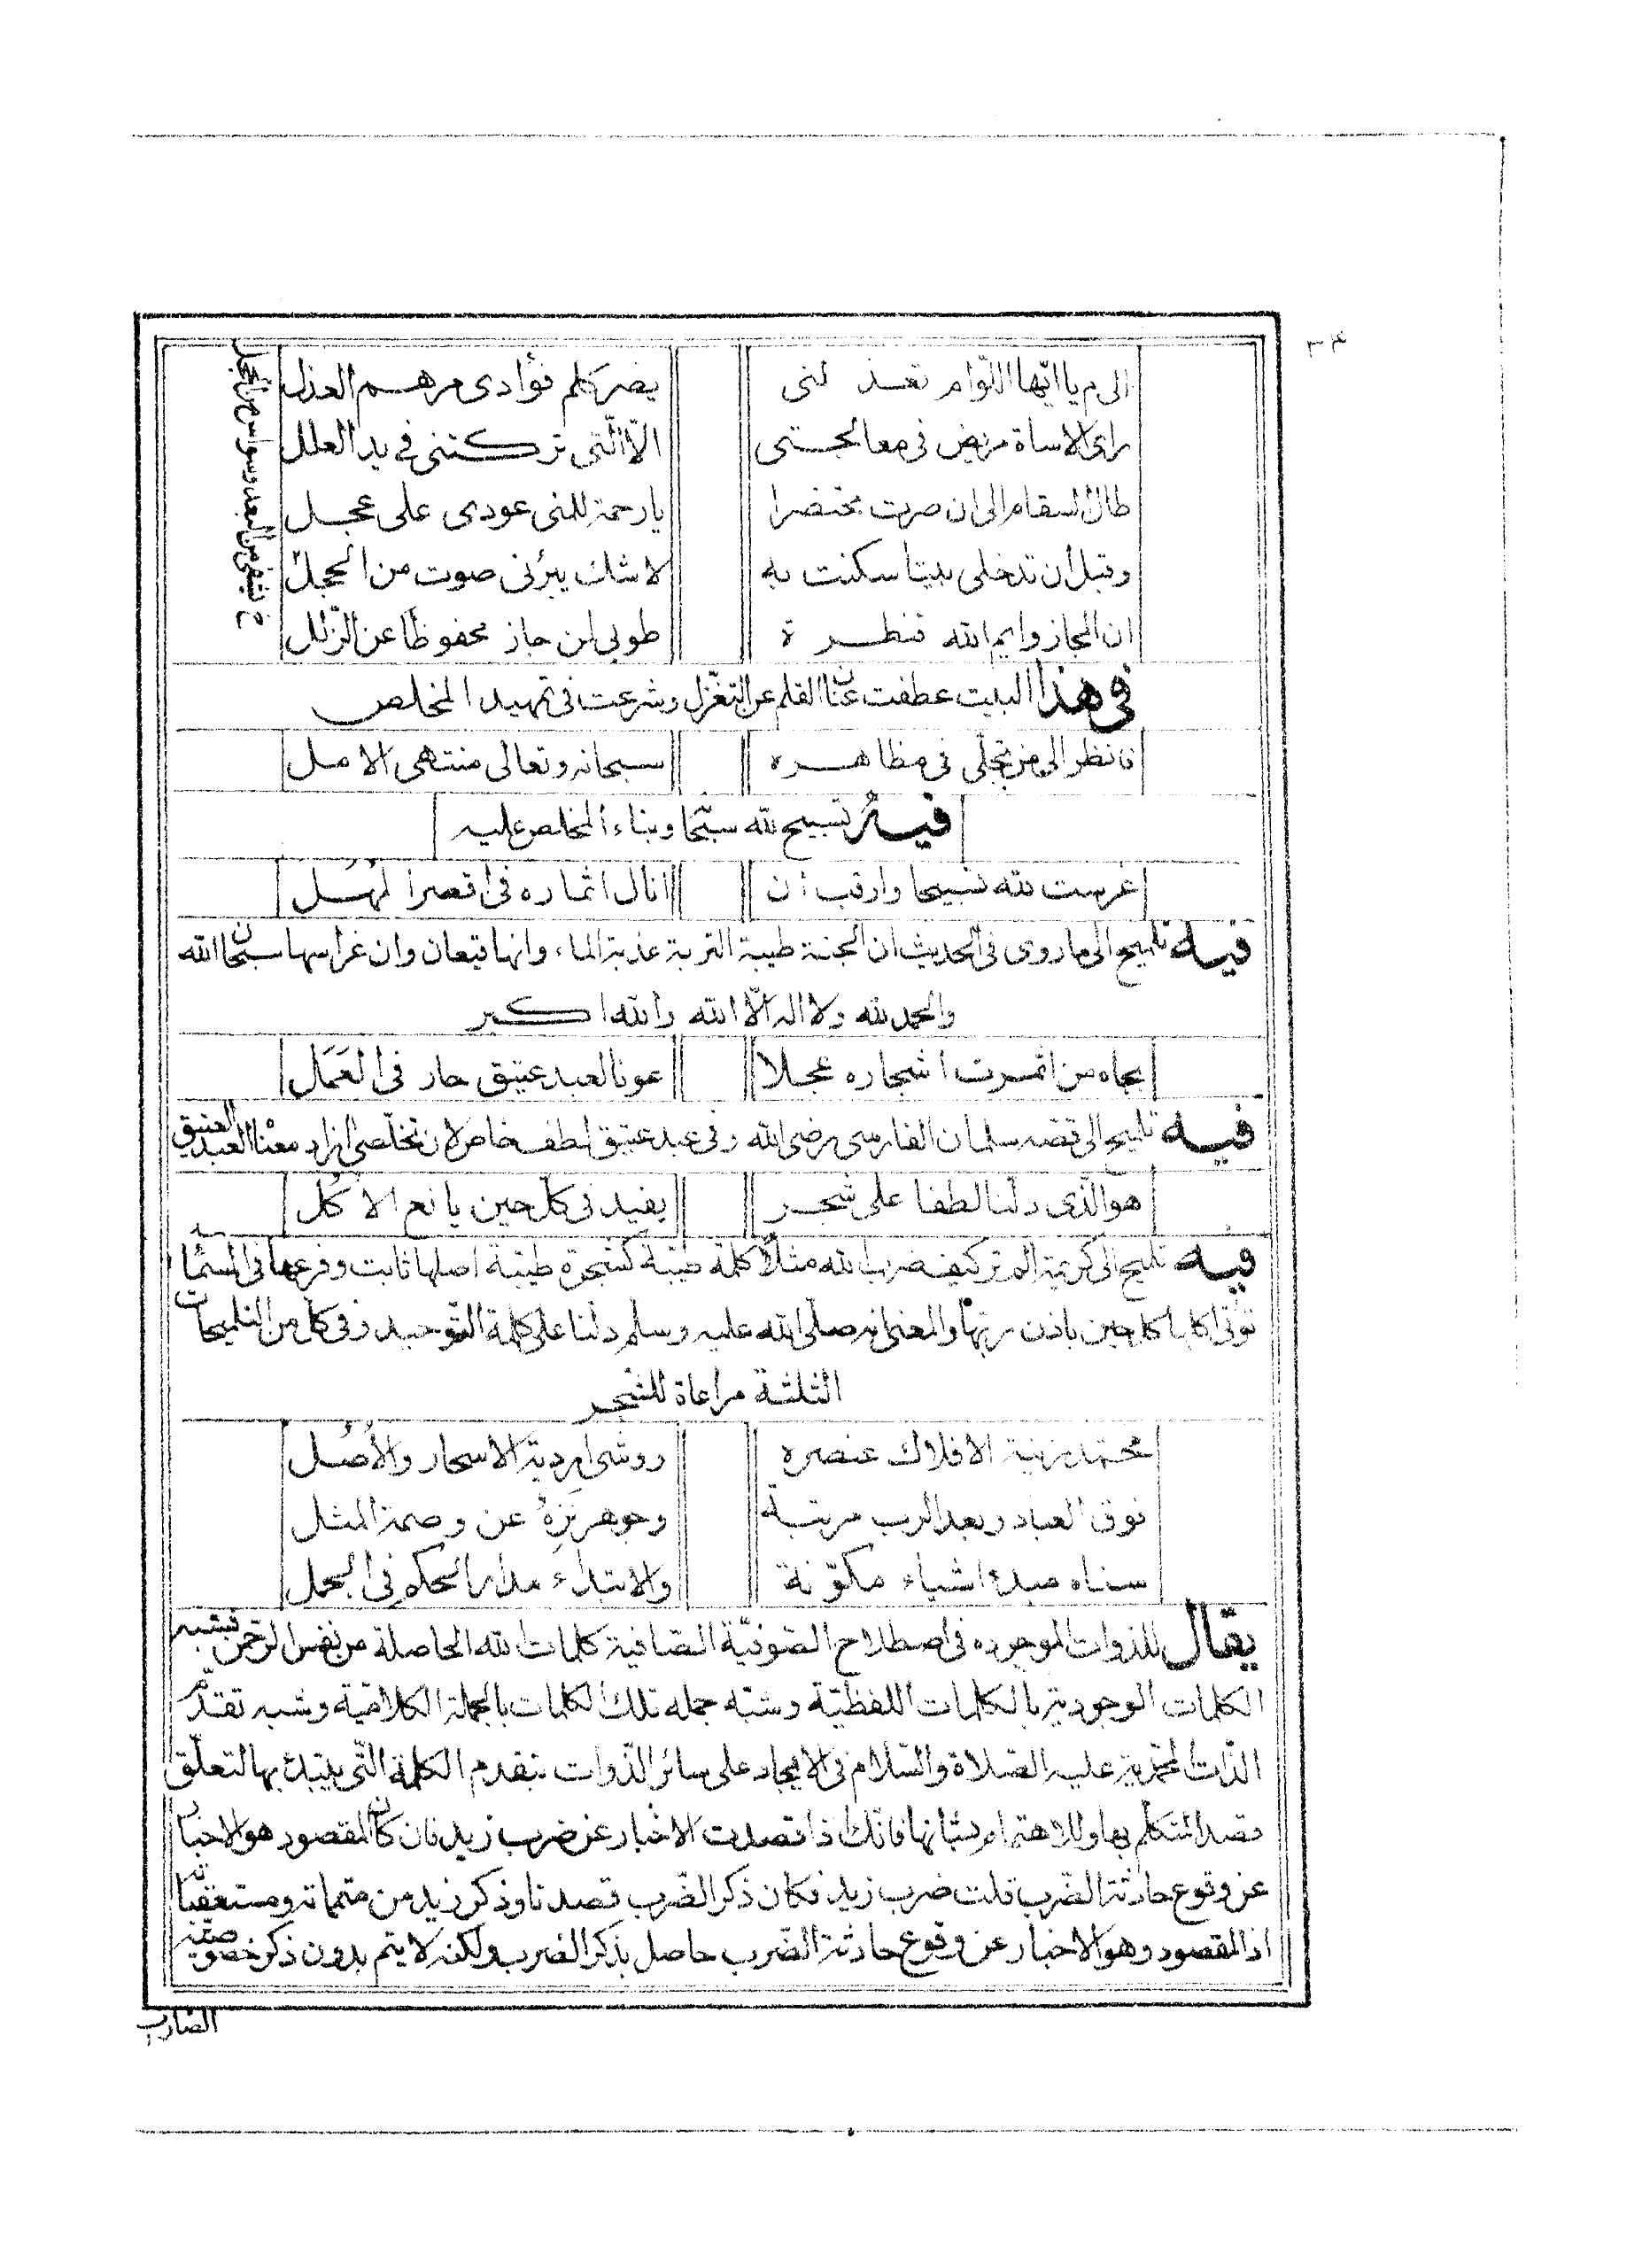 ٣٤
الى م يا ايّها اللّوام تعذلنى يضر كلم فؤادى مرهم العذل
راى الاساة مريض فى معالجتى الّا الّتى تركتنى فى يد العلل
طال السقام الى ان صرت محتضرا يا رحمة للمنى عودى على عجل
وقبل ان تدخلى بيتا سكنت به لا شك يبرئنى صوت من الحجل
ان المجاز وايم الله قنطرة طوبى لمن جاز محفوظا عن الزّلل
فى هذا البيت عطفت عنان القلم عن التغزّل وشرعت فى تمهيد المخلص
فانظر الى من تجلّى فى مظاهره سبحانه وتعالى منتهى الامل
فيه تسبيح لله سبحا وبناء المخلص عليه
غرست لله تسبيحا وارقب ان انال اثماره فى اقصر المهل
فيه تلميح الى ما روى فى الحديث ان الجنة طيبة التربة عذبة الماء وانها قيعان وان غراسها سبحان الله
والحمد لله ولا اله الّا الله والله اكبر
بجاه من اثمرت اشجاره عجلا عونا لعبد عتيق حار فى العمل
فيه تلميح الى قصه سلمان الفارسى رضى الله وفى عبد عتيق لطف خاص لان تخلّصى ازاد معناه العبد العتيق
هو الّذى دلّنا لطفا على شجر يفيد فى كلّ حين يانع الاكل
فيه تلميح الى كريمة الم تر كيف ضرب الله مثلا كلمة طيّبة كشجرة طيّبة اصلها ثابت وفرعها فى السّماء
تؤتى اكلها كل حين باذن ربّها والمعنى انه صلى الله عليه وسلم دلّنا على كلمة التّوحيد وفى كل من التلميحات
الثلثة مراعاة للشجر
محمّد زينة الافلاك عنصره روشى اردية الاسحار والاصل
فوق العباد وبعد الرب مرتبة وجوهر نزه عن وصمة المثل
سناه مبدء اشياء مكوّنة والابتداء مدار الحكم فى الجمل
يقال للذوات الموجوده فى اصطلاح الصّوفيّة الصّافية كلمات الله الحاصلة من نفس الرّحمن فشبه
الكلمات الوجودية بالكلمات اللفظيّة وشبّه جمله تلك الكلمات بالجملة الكلاميّة وشبه تقدّم
الذّات المحمّدية عليه الصّلاة والسّلام فى الايجاد على سائر الذّوات بتقدم الكلمة الّتى يبتدئ بها لتعلّق
قصد المتكلّم بها وللاهتمام بشانها فانّك اذا قصدت الاخبار عن ضرب زيد فان كان المقصود هو الاخبار
عن وقوع حادثة الضّرب قلت ضرب زيد فكان ذكر الضّرب قصدنا وذكر زيد من متمماته ومستعقباته
اذ المقصود وهو الاخبار عن وقوع حادثة الضّرب حاصل بذكر الضرب ولكنه لا يتم بدون ذكر خصوصيّة
الضّارب